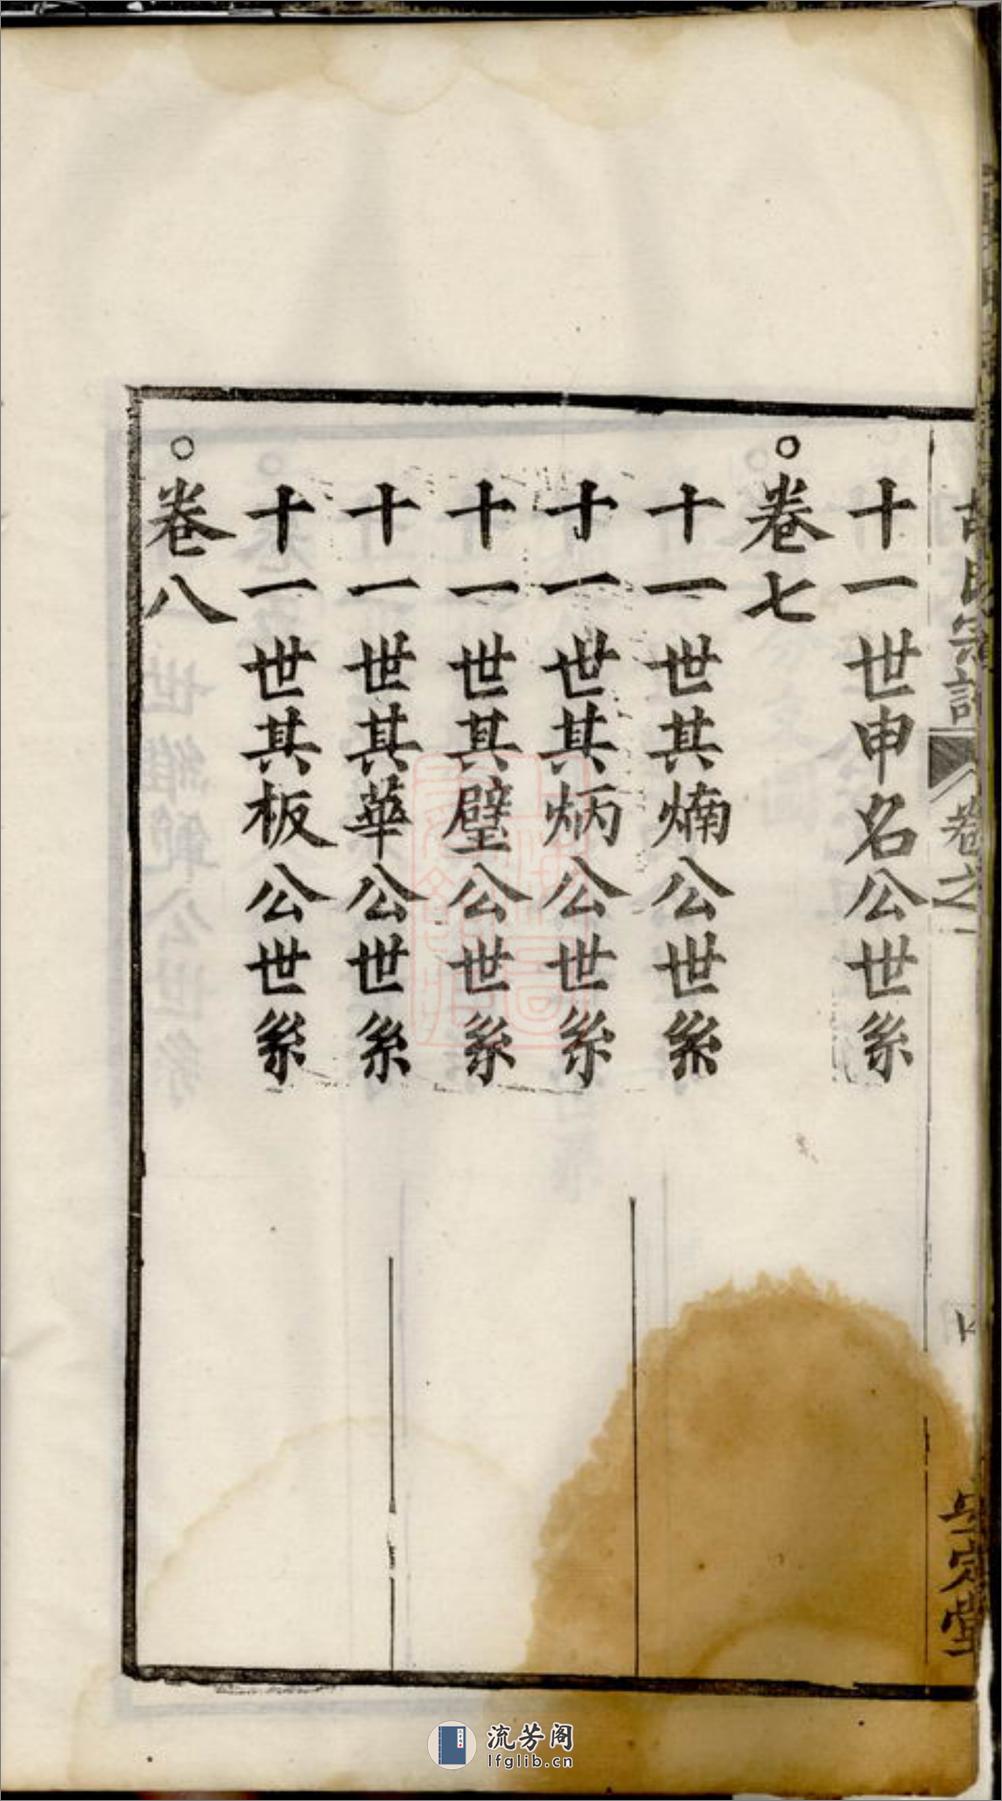 胡氏宗譜
卷之一
安定堂
十一世申名公世系
○卷七
十一世其㷟公世系
十一世其炳公世系
十一世其璧公世系
十一世其華公世系
十一世其板公世系
○卷八
流芳阁
lfglib.cn